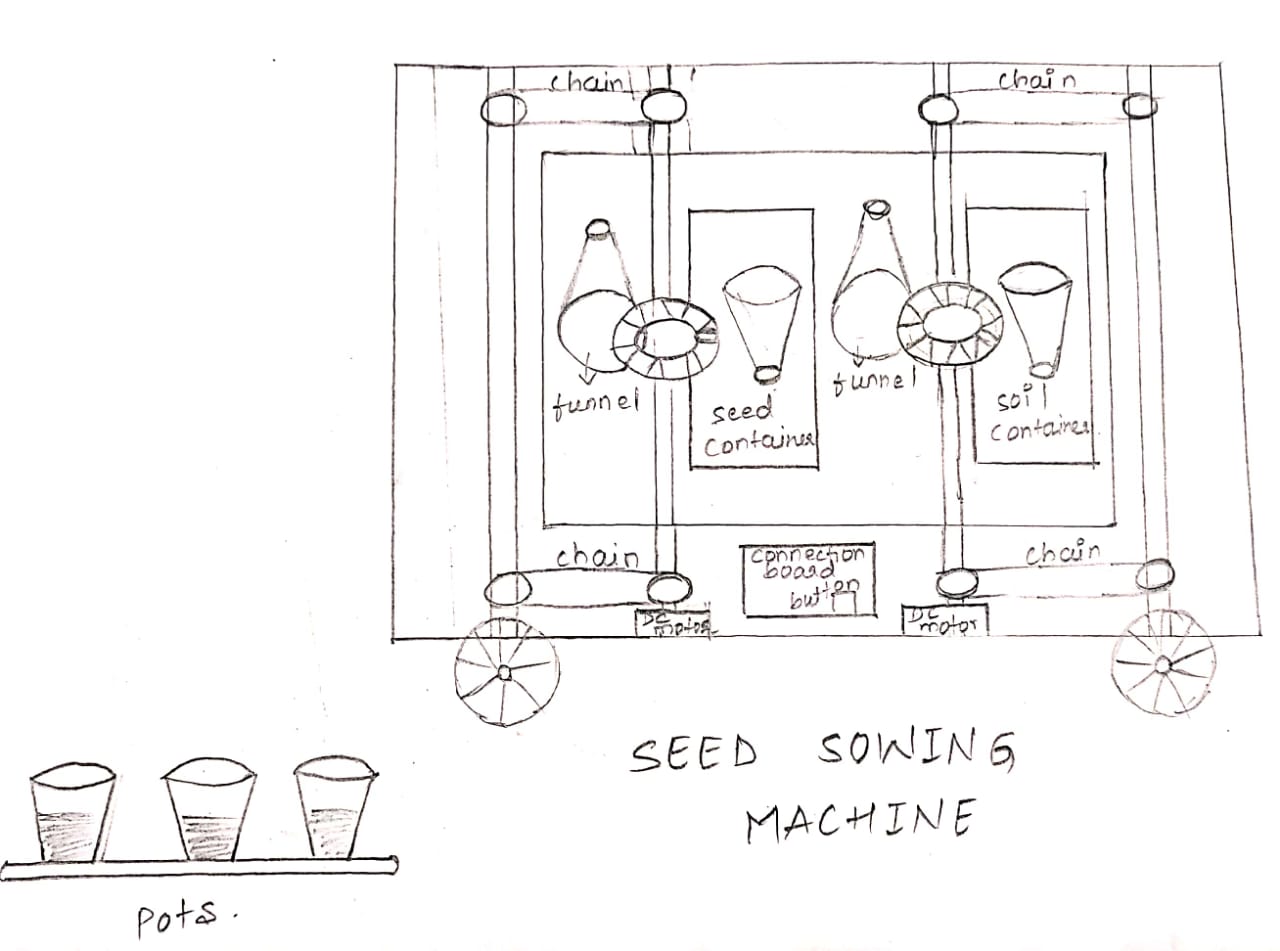 chain
chain
funnel
seed
container
funnel
soil
container
chain
connection
board
button
chain
DC
motor
DC
motor
SEED SOWING
MACHINE
pots.